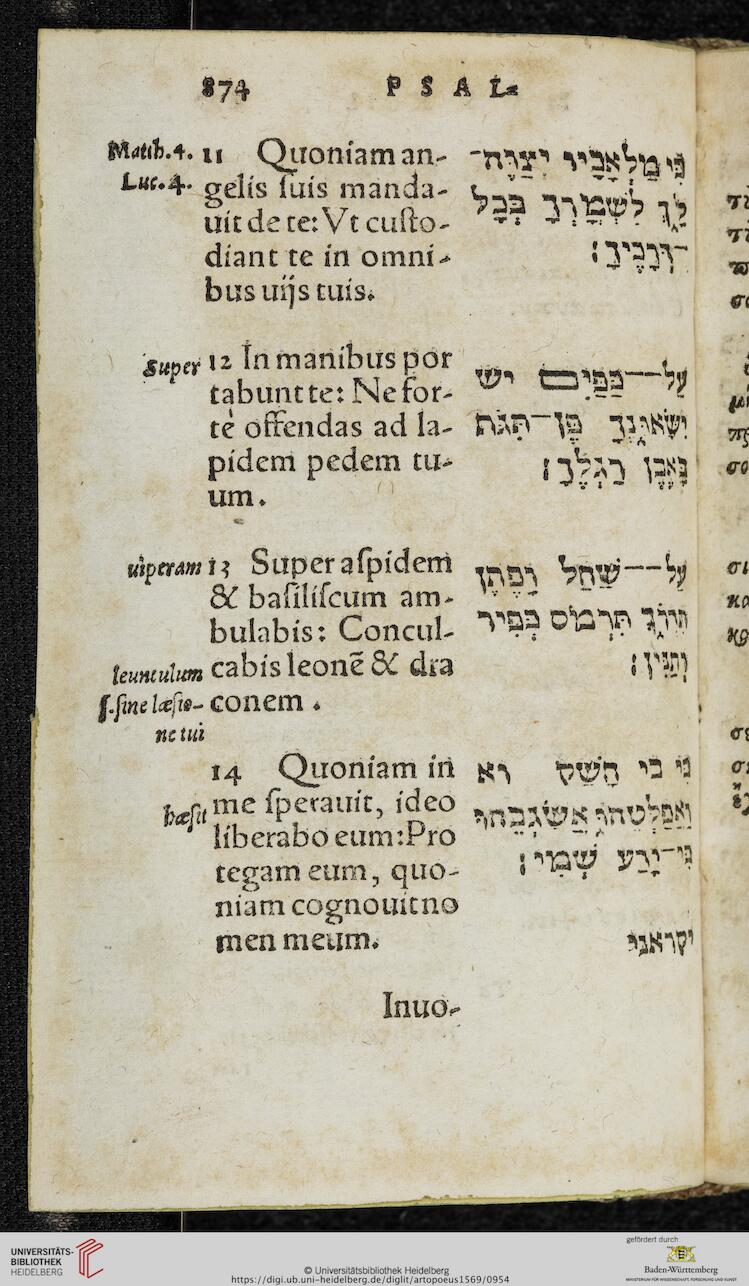 874 PSAL⸗
Matth.4. 11 Quoniam an-
Luc.4. gelis ſuis manda-
uit de te: Vt cuſto-
diant te in omni-
bus uijs tuis.
כִּי מַלְאָכָיו יְצַוֶּה־
לָּךְ לִשְׁמָרְךָ בְּכָל
־דְּרָכֶיךָ׃
Super 12 In manibus por
tabunt te: Ne for-
tè offendas ad la-
pidem pedem tu-
um.
עַל־־כַּפַּיִם יש
יִשָּׂאוּנְךָ פֶּן־תִּגֹּת
בָּאֶבֶן רַגְלֶךָ׃
uiperam 13 Super aſpidem
& baſiliſcum am-
bulabis: Concul-
leunculum cabis leonē & dra
ſ.ſine læſio- conem.
ne tui
עַל־־שַׁחַל וָפֶתֶן
תִּדְרֹךְ תִּרְמוֹס כְּפִיר
וְתַנִּין׃
14 Quoniam in
hæſit me ſperauit, ideo
liberabo eum: Pro
tegam eum, quo-
niam cognouit no
men meum.
כִּי בִי חָשַׁק וא
וַאֲפַלְּטֵהוּ אֲשַׂגְּבֵהוּ
כִּי־יָדַע שְׁמִי׃
יִקְרָאֵנִי
Inuo-
UNIVERSITÄTS-
BIBLIOTHEK
HEIDELBERG
© Universitätsbibliothek Heidelberg
https://digi.ub.uni-heidelberg.de/diglit/artopoeus1569/0954
gefördert durch
Baden-Württemberg
MINISTERIUM FÜR WISSENSCHAFT, FORSCHUNG UND KUNST